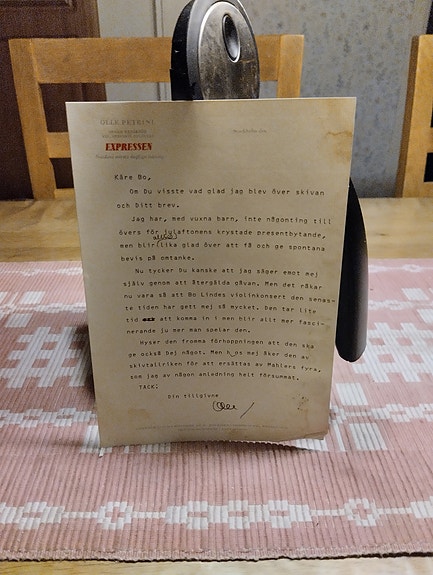 OLLE PETRINI
EXPRESSEN
Käre Bo,
Om Du visste vad glad jag blev över skivan
och Ditt brev.
Jag har, med vuxna barn, inte någonting till
övers för julaftonens krystade presentbytande,
alltid
men blir lika glad över att få och ge spontana
bevis på omtanke.
Nu tycker Du kanske att jag säger emot mej
själv genom att återgälda gåvan. Men det råkar
nu vara så att Bo Lindes violinkonsert den senas-
te tiden har gett mej så mycket. Den tar lite
tid att komma in i men blir allt mer fasci-
nerande ju mer man spelar den.
Hyser den fromma förhoppningen att den ska
ge också Dej något. Men h os mej åker den av
skivtallriken för att ersättas av Mahlers fyra,
som jag av någon anledning helt försummat.
TACK!
Din tillgivne
Olle